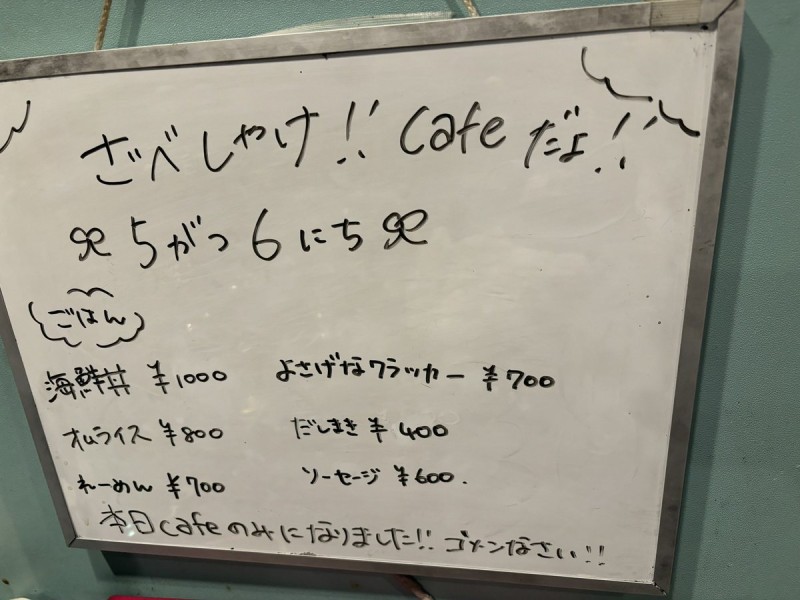 ざべしゃけ!! cafeだよ!!
5がつ6にち
ごはん
海鮮丼 ¥1000
よさげなクラッカー ¥700
オムライス ¥800
だしまき ¥400
れーめん ¥700
ソーセージ ¥600.
本日cafeのみになりました!! ゴメンなさい!!